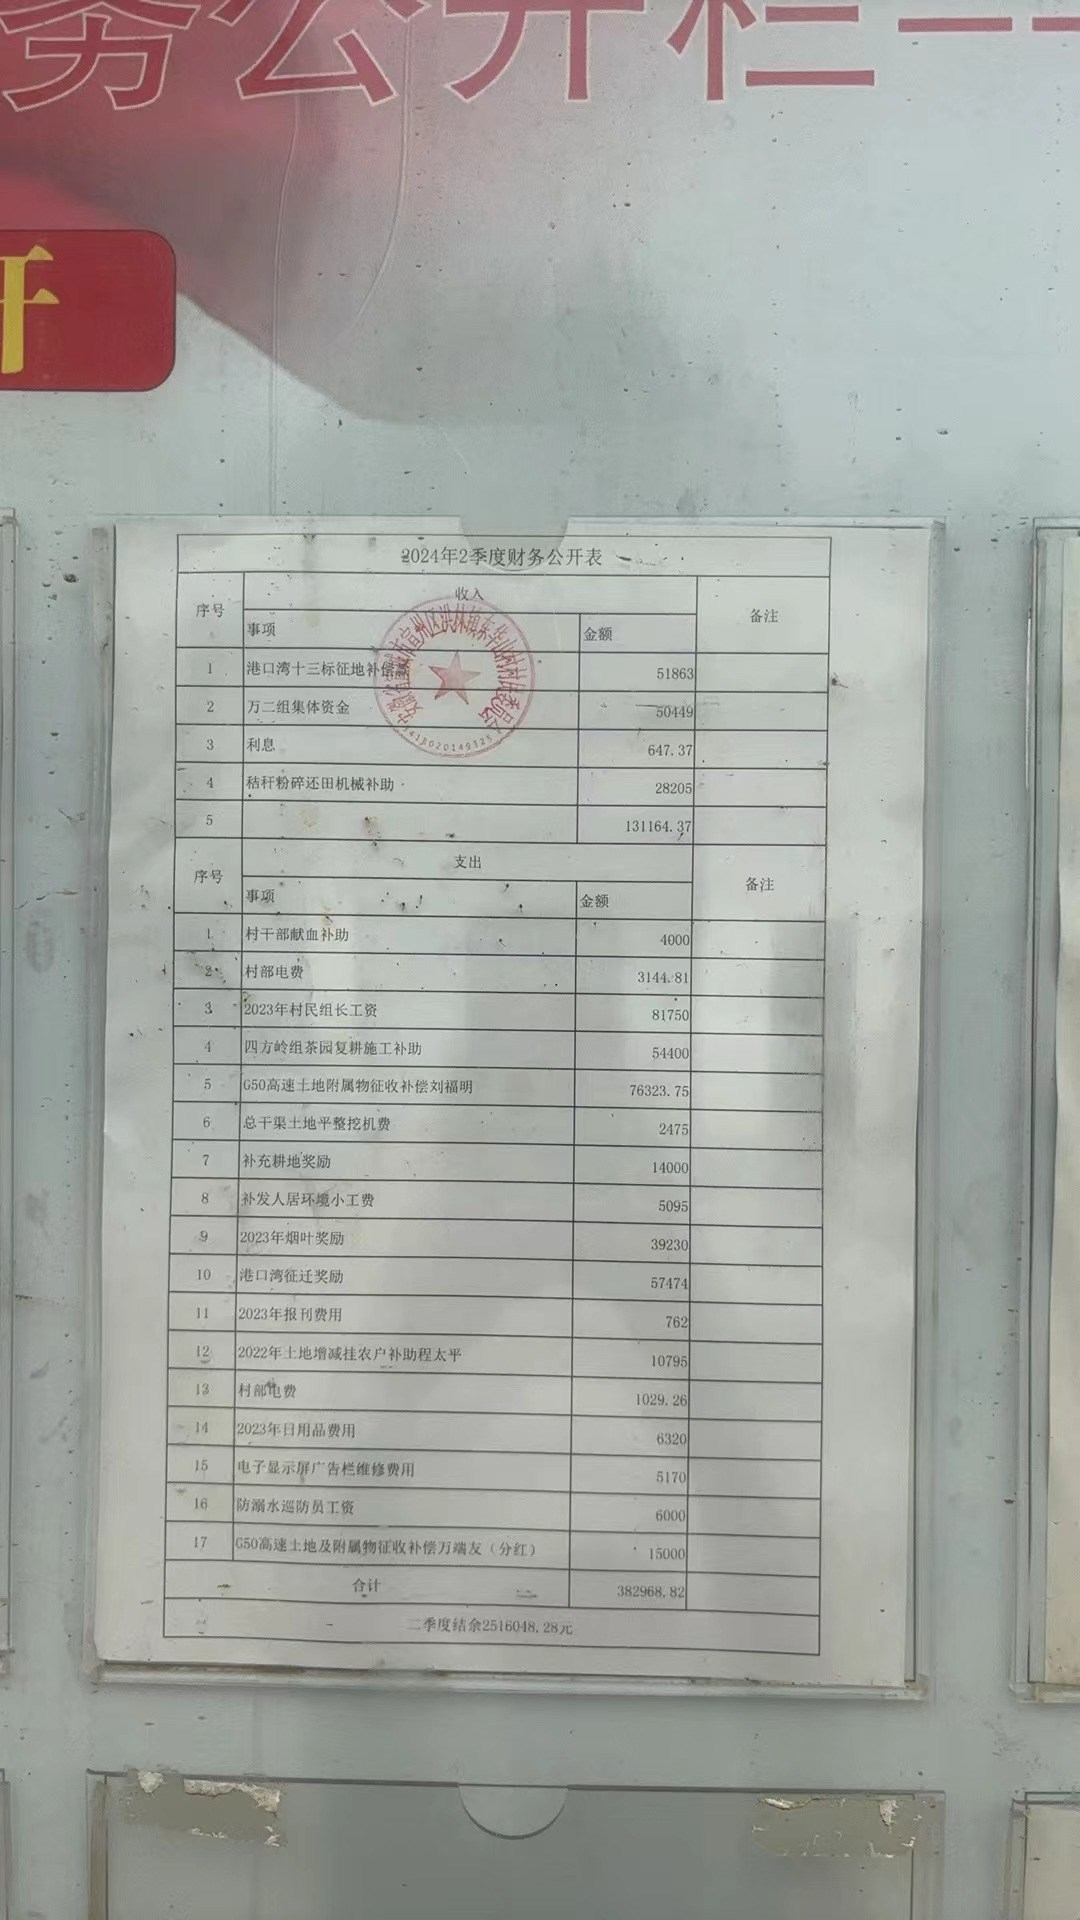 务公开栏
开
2024年2季度财务公开表
序号 收入 备注
事项 金额
1 港口湾十三标征地补偿 51863
2 万二组集体资金 50449
3 利息 647.37
4 秸秆粉碎还田机械补助 28205
5 131164.37
序号 支出 备注
事项 金额
1 村干部献血补助 4000
2 村部电费 3144.81
3 2023年村民组长工资 81750
4 四方岭组茶园复耕施工补助 54400
5 G50高速土地附属物征收补偿刘福明 76323.75
6 总干渠土地平整挖机费 2475
7 补充耕地奖励 14000
8 补发人居环境小工费 5095
9 2023年烟叶奖励 39230
10 港口湾征迁奖励 57474
11 2023年报刊费用 762
12 2022年土地增减挂农户补助程太平 10795
13 村部电费 1029.26
14 2023年日用品费用 6320
15 电子显示屏广告栏维修费用 5170
16 防溺水巡防员工资 6000
17 G50高速土地及附属物征收补偿万端友（分红） 15000
合计 382968.82
二季度结余2516048.28元